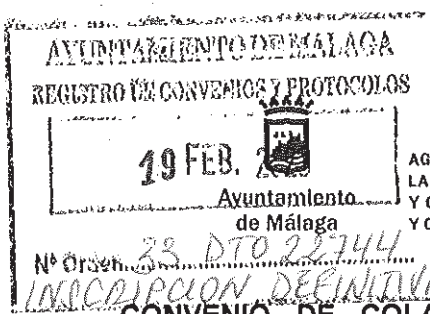 AYUNTAMIENTO DE MALAGA
REGISTRO DE CONVENIOS Y PROTOCOLOS
19 FEB.
Ayuntamiento
de Málaga
AG
LA
Y C
Y C
Nº Orden 33 DTO 22744
INSCRIPCION DEFINITIVA
CONVENIO DE COLA